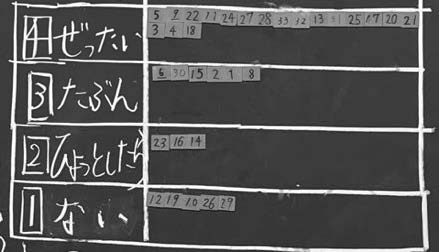 4 ぜったい
5 9 22 11 24 27 28 33 32 13 31 25 17 20 21
3 4 18
3 たぶん
6 30 15 2 1 8
2 ひょっとしたら
23 16 14
1 ない
12 19 10 26 29